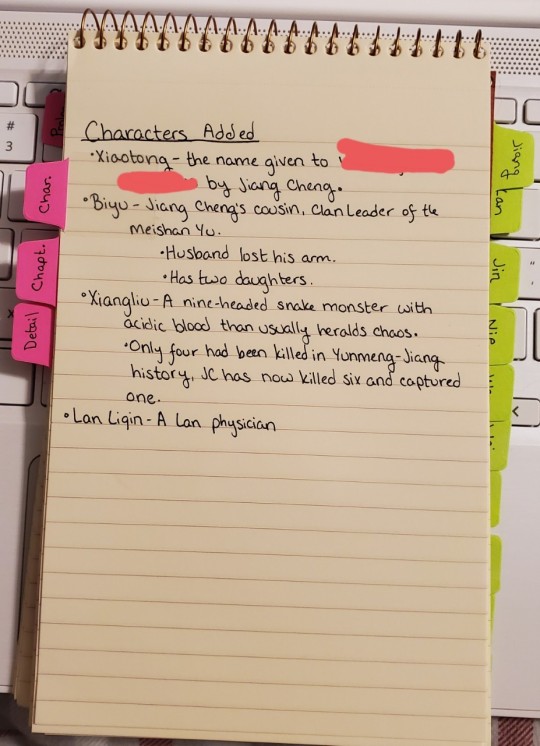 Characters Added
•Xiaotong - the name given to
by Jiang Cheng.
•Biyu - Jiang Cheng's cousin, Clan Leader of the
meishan Yu.
•Husband lost his arm.
•Has two daughters.
•Xiangliu - A nine-headed snake monster with
acidic blood than usually heralds chaos.
•Only four had been killed in Yunmeng-Jiang
history, JC has now killed six and captured
one.
•Lan Liqin - A Lan physician
Char.
Chapt.
Detail
Jiang
Lan
Jin
Nie
#
3